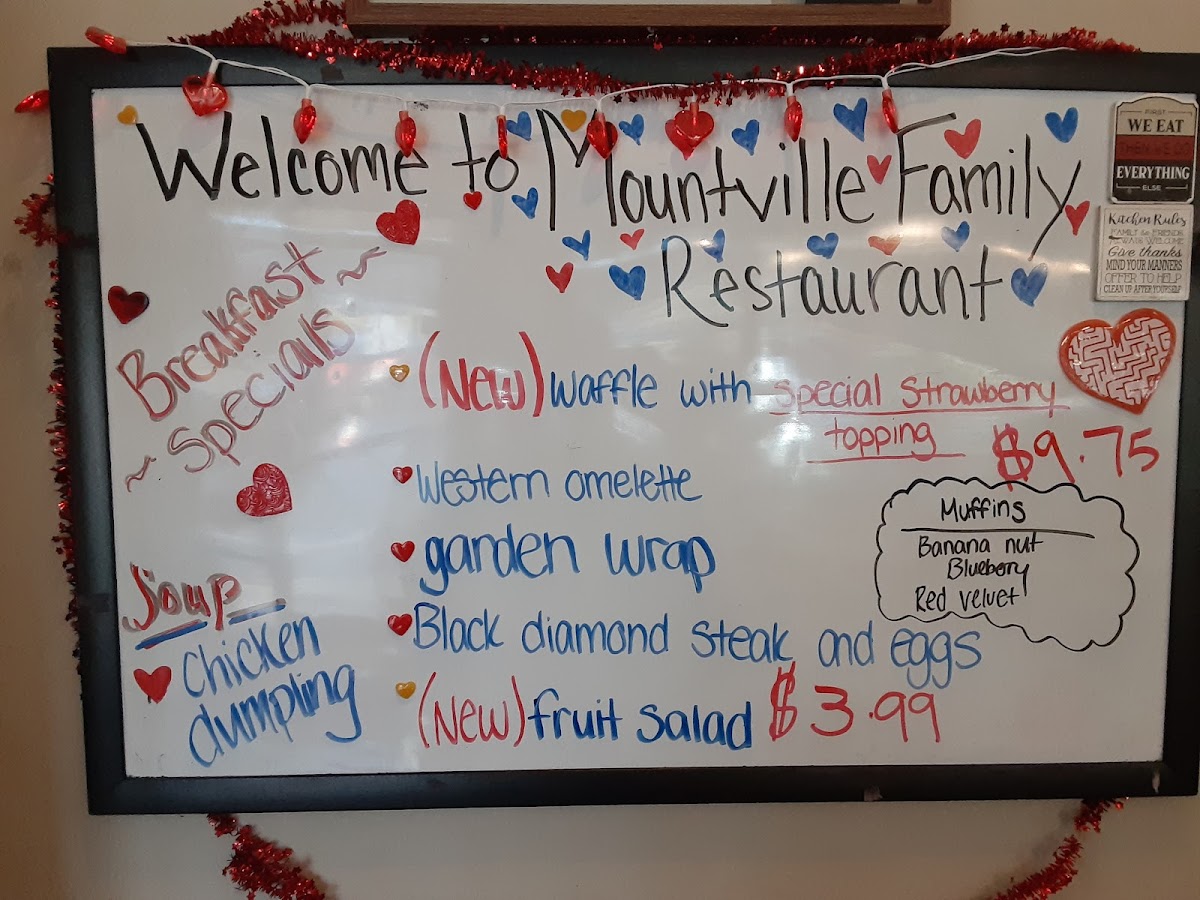 Welcome to Mountville Family
Restaurant
Breakfast
~ Specials ~
(New) waffle with special strawberry
topping $9.75
Western omelette
garden wrap
Black diamond steak and eggs
(New) fruit salad $3.99
Muffins
Banana nut
Blueberry
Red velvet
Soup
Chicken
dumpling
FIRST
WE EAT
THEN WE DO
EVERYTHING
ELSE
Kitchen Rules
FAMILY & FRIENDS
ALWAYS WELCOME
Give thanks
MIND YOUR MANNERS
OFFER TO HELP
CLEAN UP AFTER YOURSELF